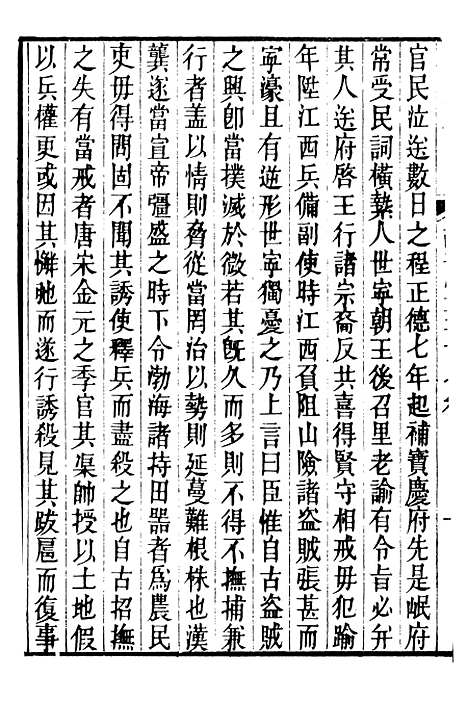 官民泣送數日之程正德七年起補寶慶府先是岷府
常受民詞橫縶人世寧朝王後召里老諭有令㫖必并
其人送府啓王行諸宗裔反共喜得賢守相戒毋犯踰
年陞江西兵備副使時江西負阻山險諸盗賊張甚而
寧濠且有逆形世寧獨憂之乃上言曰臣惟自古盗賊
之興卽當撲滅於微若其旣久而多則不得不撫捕兼
行者盖以情則脅從當罔治以勢則延蔓難根株也漢
龔遂當宣帝彊盛之時下令渤海諸持田器者爲農民
吏毋得問固不聞其誘使釋兵而盡殺之也自古招撫
之失有當戒者唐宋金元之季官其渠帥授以土地假
以兵權更或因其懈弛而遂行誘殺見其跋扈而復事